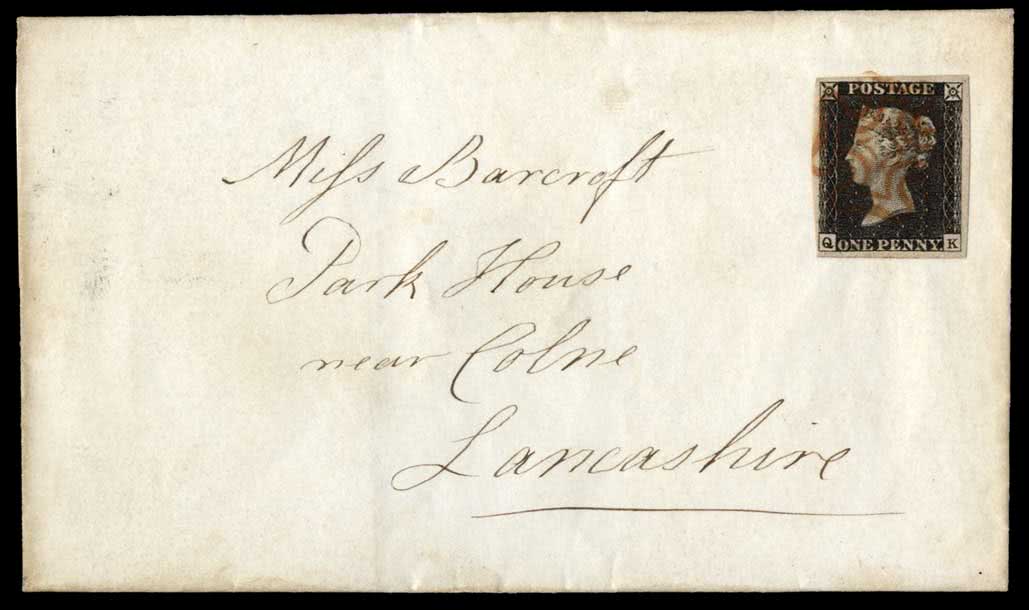 POSTAGE
Miſs Barcroft
Q ONE PENNY K
Park House
near Colne
Lancashire